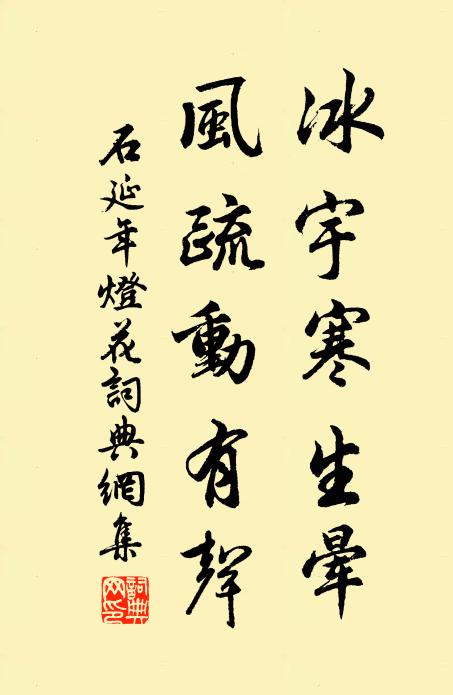 冰宇寒生暈
風疏動有聲
石延年燈花詞典網集
詞典網印